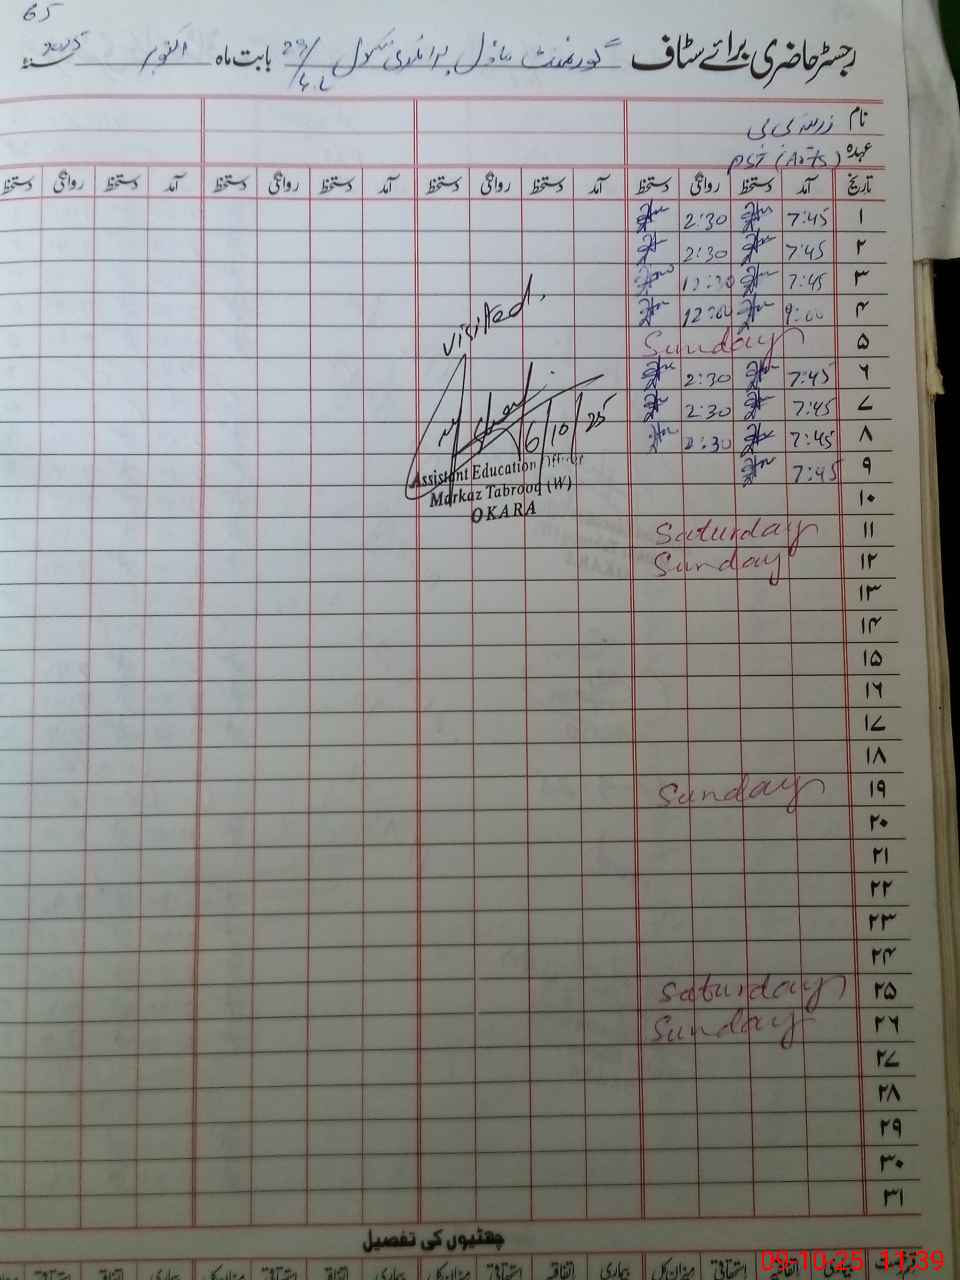 65
رجسٹر حاضری برائے سٹاف گورنمنٹ ماڈل پرائمری سکول 29/4.L بابت ماہ اکتوبر 2025
نام
عہدہ PST (Arts)
تاریخ آمد دستخط روانگی دستخط آمد دستخط روانگی دستخط آمد دستخط روانگی دستخط آمد دستخط روانگی دستخط
۱ 7:45 2:30
۲ 7:45 2:30
۳ 7:45
۴ 9:00 12:00
۵ Sunday
۶ 7:45 2:30
۷ 7:45 2:30
۸ 7:45 2:30
۹ 7:45
visited.
6/10/25
Assistant Education Officer
Markaz Tabrooq (W)
OKARA
۱۰
۱۱ Saturday
۱۲ Sunday
۱۳
۱۴
۱۵
۱۶
۱۷
۱۸
۱۹ Sunday
۲۰
۲۱
۲۲
۲۳
۲۴
۲۵ Saturday
۲۶ Sunday
۲۷
۲۸
۲۹
۳۰
۳۱
چھٹیوں کی تفصیل
اتفاقیہ استحقاقی میزان کل بیماری اتفاقیہ استحقاقی میزان کل بیماری اتفاقیہ استحقاقی میزان کل بیماری اتفاقیہ
09-10-25 11:39